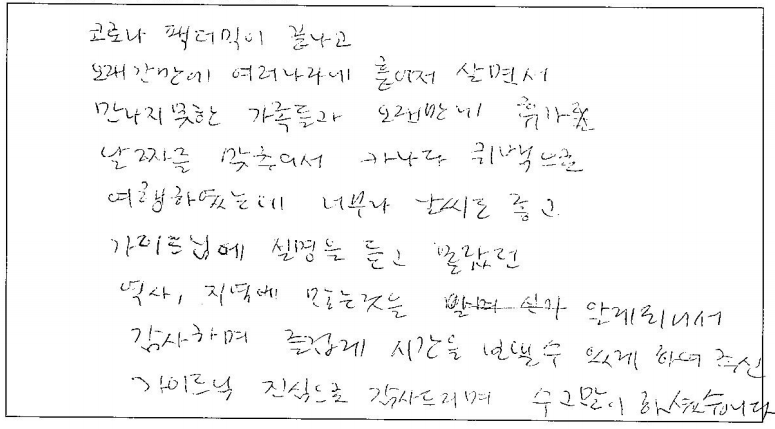 코로나 팩더믹이 끝나고
오래간만에 여러나라에 흩어저 살면서
만나지못한 가족들과 오랜만에 휴가를
날짜를 맞추어서 카나다 퀴백으로
여행하였는데 너무나 날씨도 좋고
가이드님에 설명을 듣고 몰랐던
역사, 지역에 모든것을 알게되어서
감사하며 즐겁게 시간을 보낼수 있게 하여 주신
가이드님 진심으로 감사드리며 수고많이 하셨습니다